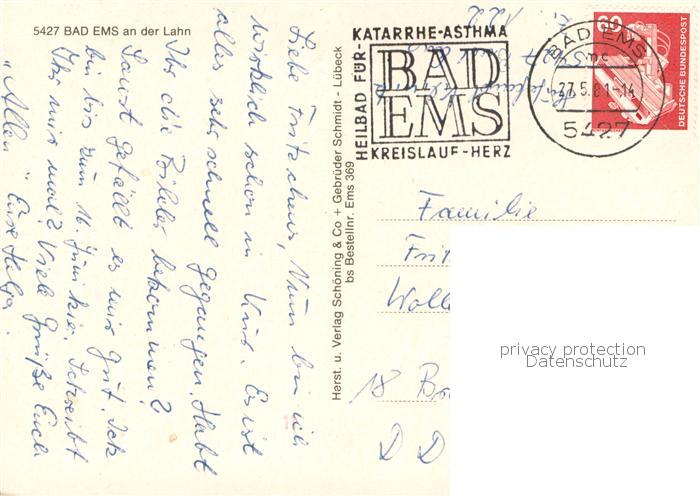 5427 BAD EMS an der Lahn
Liebe Fritschens, Nun bin ich
wirklich schon in Kur. Es ist
alles sehr schnell gegangen. Habt
Ihr die Bilder bekommen?
Sonst gefällt es mir gut. Ich
bin bis zum 16. Juni hier. Schreibt
Ihr mir mal? Viele Grüße Euch
"Allen" Eure Helga.
Herst. u. Verlag Schöning & Co + Gebrüder Schmidt - Lübeck
bs Bestellnr. Ems 369
HEILBAD FÜR-
KATARRHE-ASTHMA
BAD
EMS
KREISLAUF-HERZ
BAD EMS
27.5.81-14
5427
60
DEUTSCHE BUNDESPOST
Familie
Frit
Woll
18
DD
privacy protection
Datenschutz